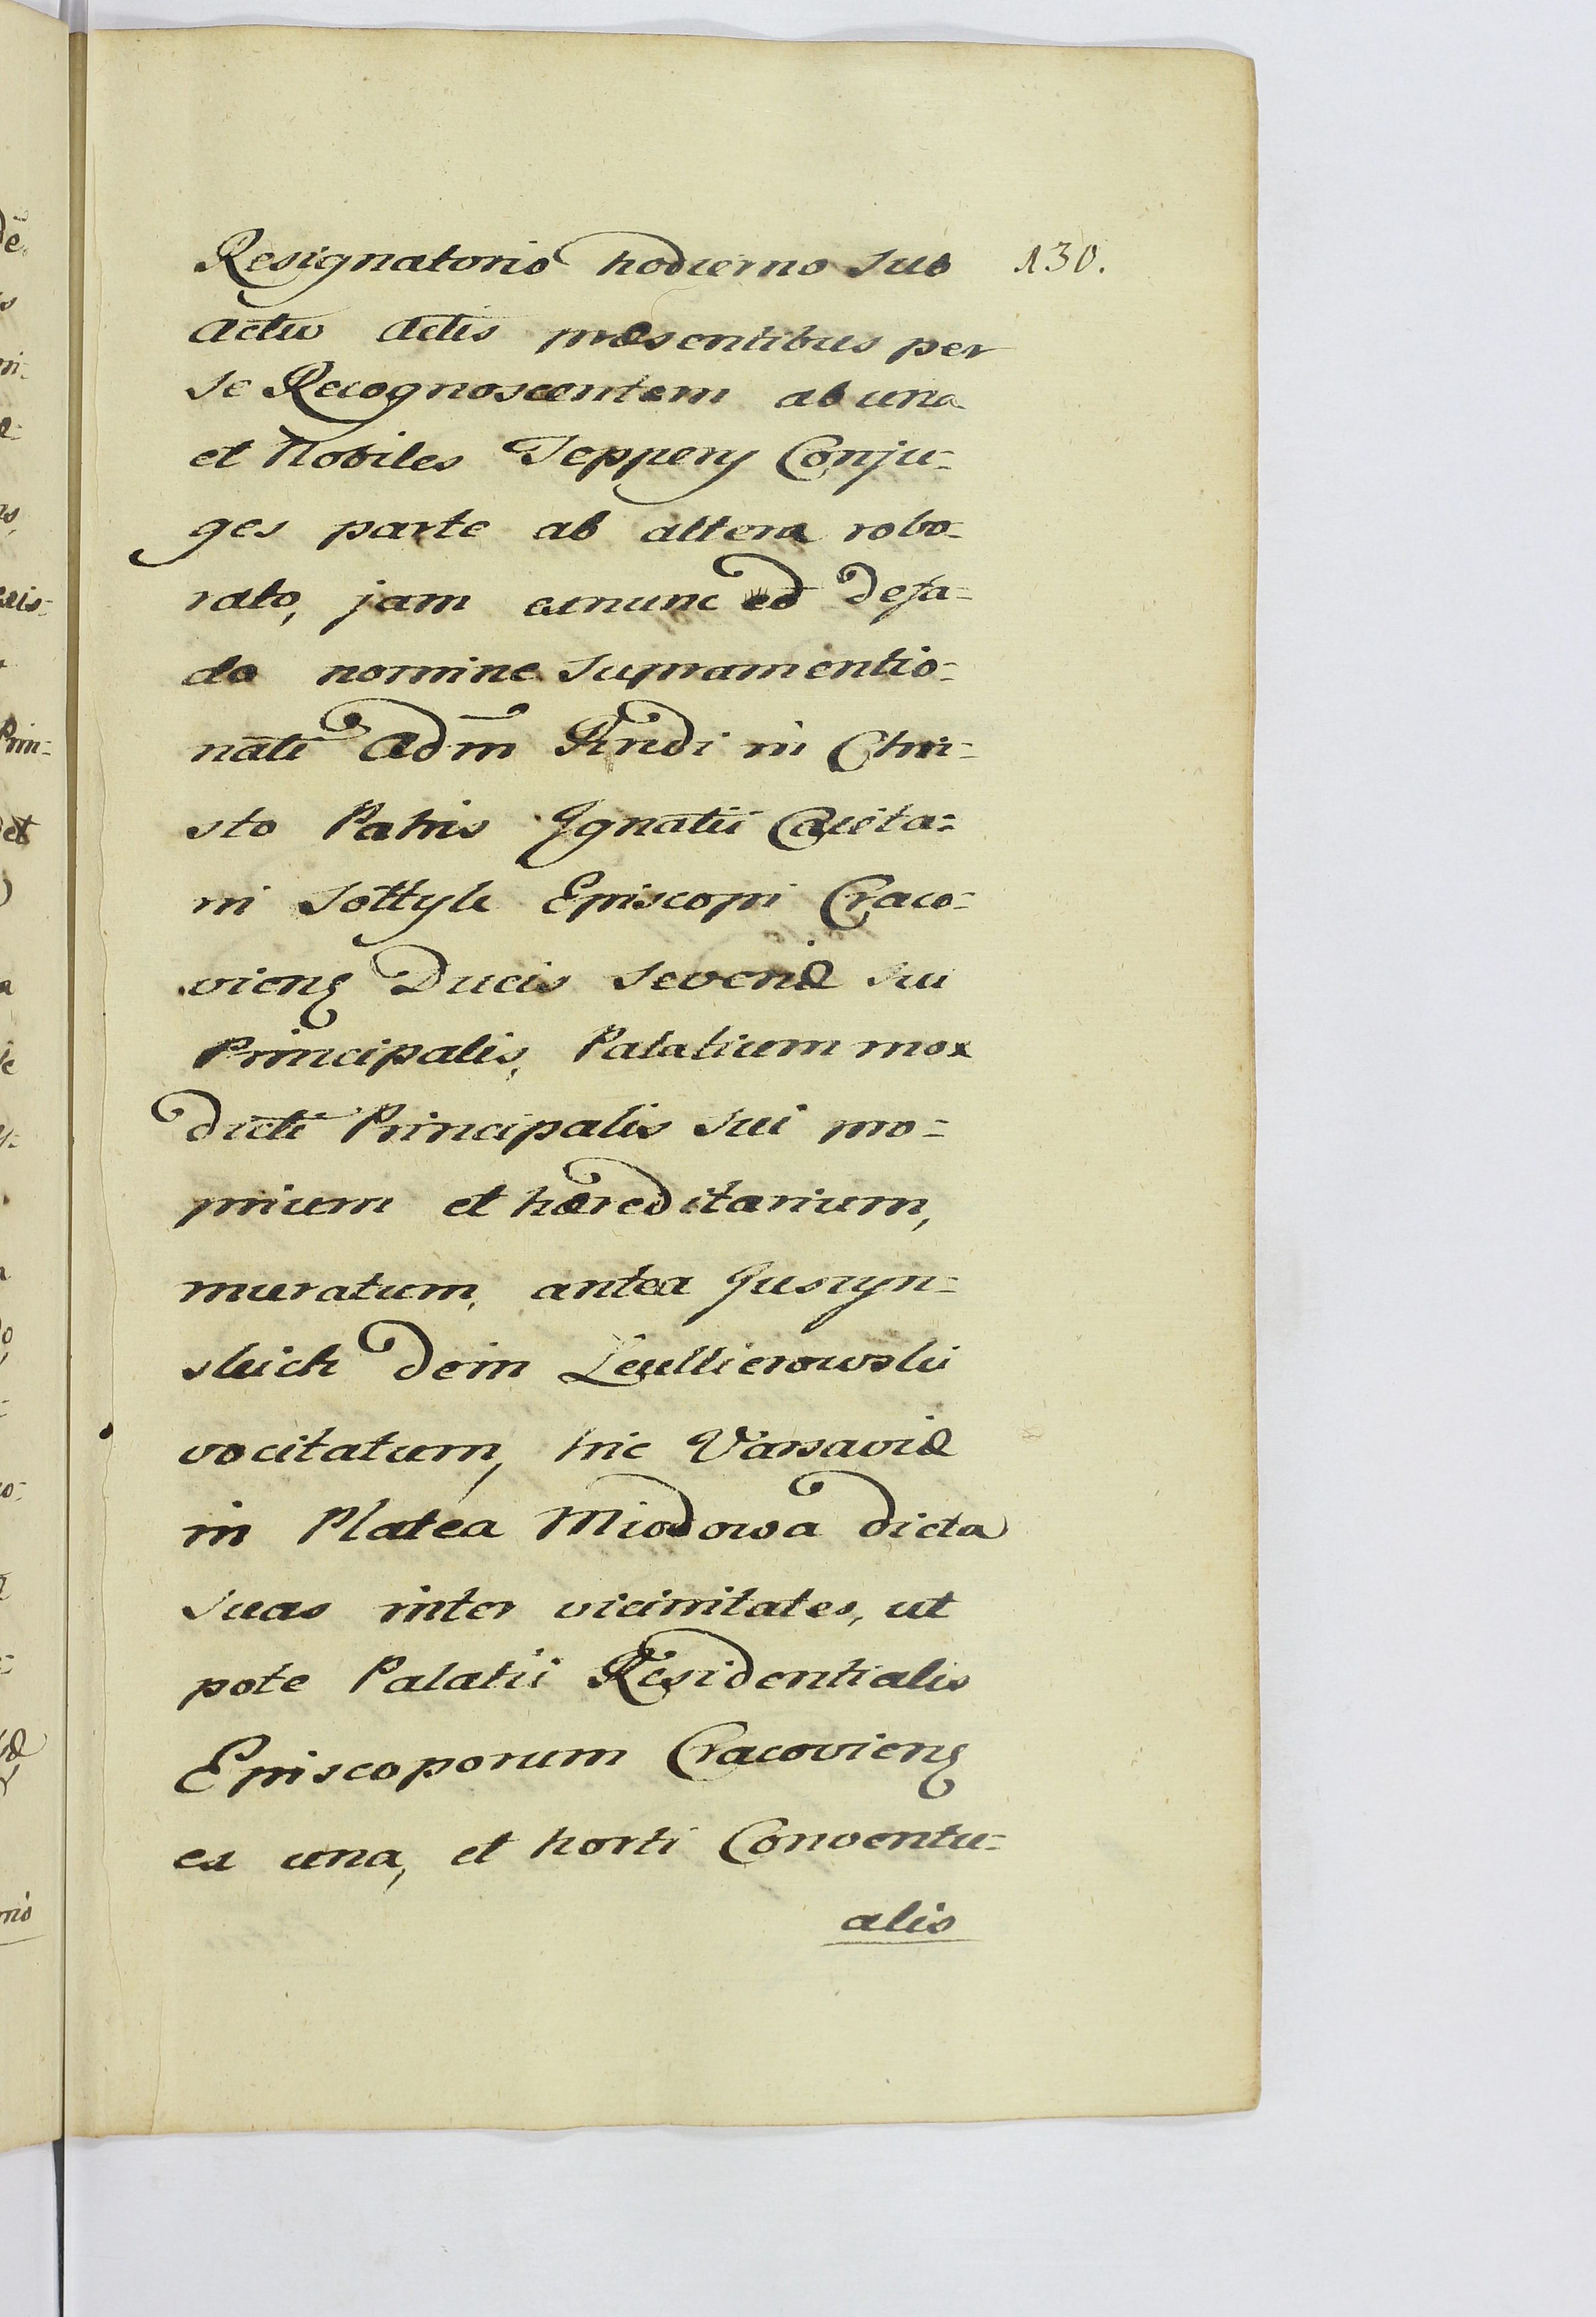 Resignatorio hodierno sub 130.
actu actis præsentibus per
se Recognoscentem ab una
et Nobiles Teppery Conju=
ges parte ab altera robo=
rato, jam exnunc ed defa=
do nomine supramentio=
nati Adm Rndi in Chri=
sto Patris Ignatii Caieta=
ni Sołtyk Episcopi Craco=
vieng Ducis Severiæ sui
Principalis, Palatium mox
dicti Principalis sui pro=
prium et hæreditarium,
muratum, antea Jusryn=
skich dein Leullierowski
vocitatum, hic Varsaviæ
in Platea Miodowa dicta
suas inter vicinitates, ut
pote Palatii Residentialis
Episcoporum Cracovieng
ex una, et horti Conventu=
alis